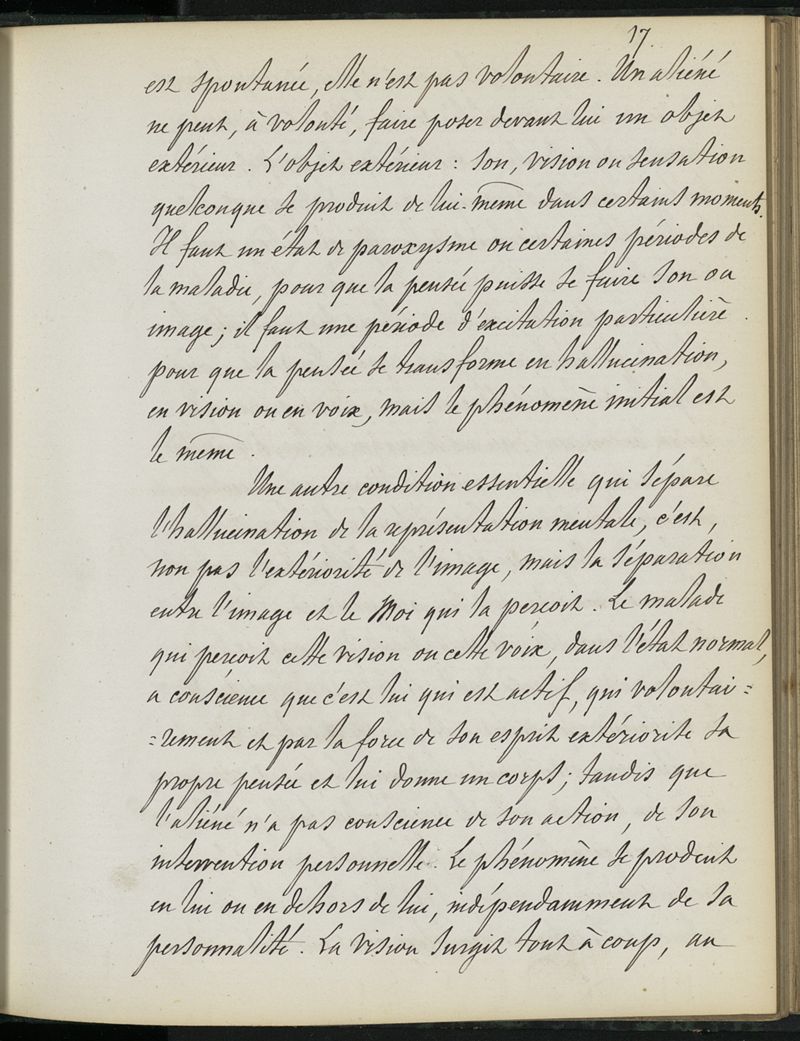 17
est spontanée, elle n'est pas volontaire. Un aliéné
ne peut, à volonté, faire poser devant lui un objet
extérieur. L'objet extérieur : son, vision ou sensation
quelconque se produit de lui-même dans certains moments.
Il faut un état de paroxysme ou certaines périodes de
la maladie, pour que la pensée puisse se faire son ou
image; il faut une période d'excitation particulière
pour que la pensée se transforme en hallucination,
en vision ou en voix, mais le phénomène initial est
le même.
Une autre condition essentielle qui sépare
l'hallucination de la représentation mentale, c'est,
non pas l'extériorité de l'image, mais la séparation
entre l'image et le Moi qui la perçoit. Le malade
qui perçoit cette vision ou cette voix, dans l'état normal,
a conscience que c'est lui qui est actif, qui volontai=
=rement et par la force de son esprit extériorise sa
propre pensée et lui donne un corps; tandis que
l'aliéné n'a pas conscience de son action, de son
intervention personnelle. Le phénomène se produit
en lui ou en dehors de lui, indépendamment de sa
personnalité. La vision surgit tout à coup, au